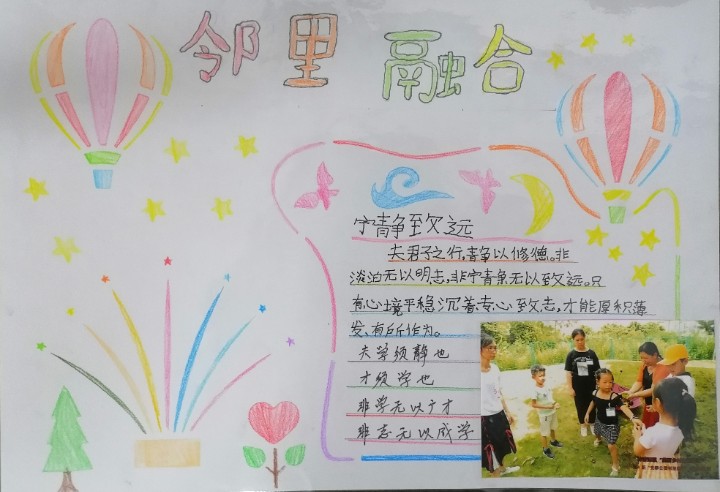 邻里 融合
宁静致远
夫君子之行,静以修德。非
淡泊无以明志,非宁静无以致远。只
有心境平稳沉着、专心致志,才能厚积薄
发、有所作为。
夫学须静也
才须学也
非学无以广才
非志无以成学